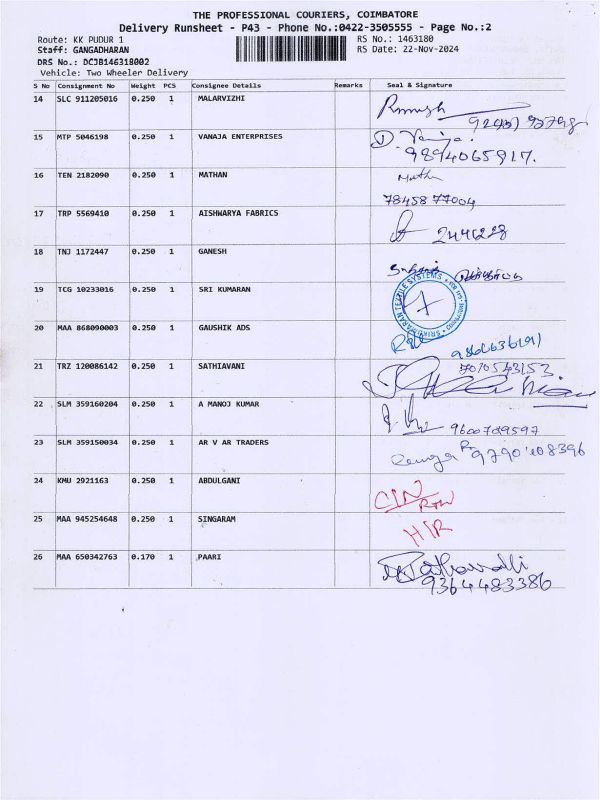 THE PROFESSIONAL COURIERS, COIMBATORE
Delivery Runsheet - P43 - Phone No.:0422-3505555 - Page No.:2
Route: KK PUDUR 1 RS No.: 1463180
Staff: GANGADHARAN RS Date: 22-Nov-2024
DRS No.: DCJB146318002
Vehicle: Two Wheeler Delivery
S No Consignment No Weight PCS Consignee Details Remarks Seal & Signature
14 SLC 911205016 0.250 1 MALARVIZHI
15 MTP 5046198 0.250 1 VANAJA ENTERPRISES
9894065917.
16 TEN 2182090 0.250 1 MATHAN
78458 77004
17 TRP 5569410 0.250 1 AISHWARYA FABRICS
18 TNJ 1172447 0.250 1 GANESH
19 TCG 10233016 0.250 1 SRI KUMARAN
20 MAA 868090003 0.250 1 GAUSHIK ADS
21 TRZ 120086142 0.250 1 SATHIAVANI
22 SLM 359160204 0.250 1 A MANOJ KUMAR
23 SLM 359150034 0.250 1 AR V AR TRADERS
24 KMU 2921163 0.250 1 ABDULGANI
25 MAA 945254648 0.250 1 SINGARAM
26 MAA 650342763 0.170 1 PAARI
9364483386